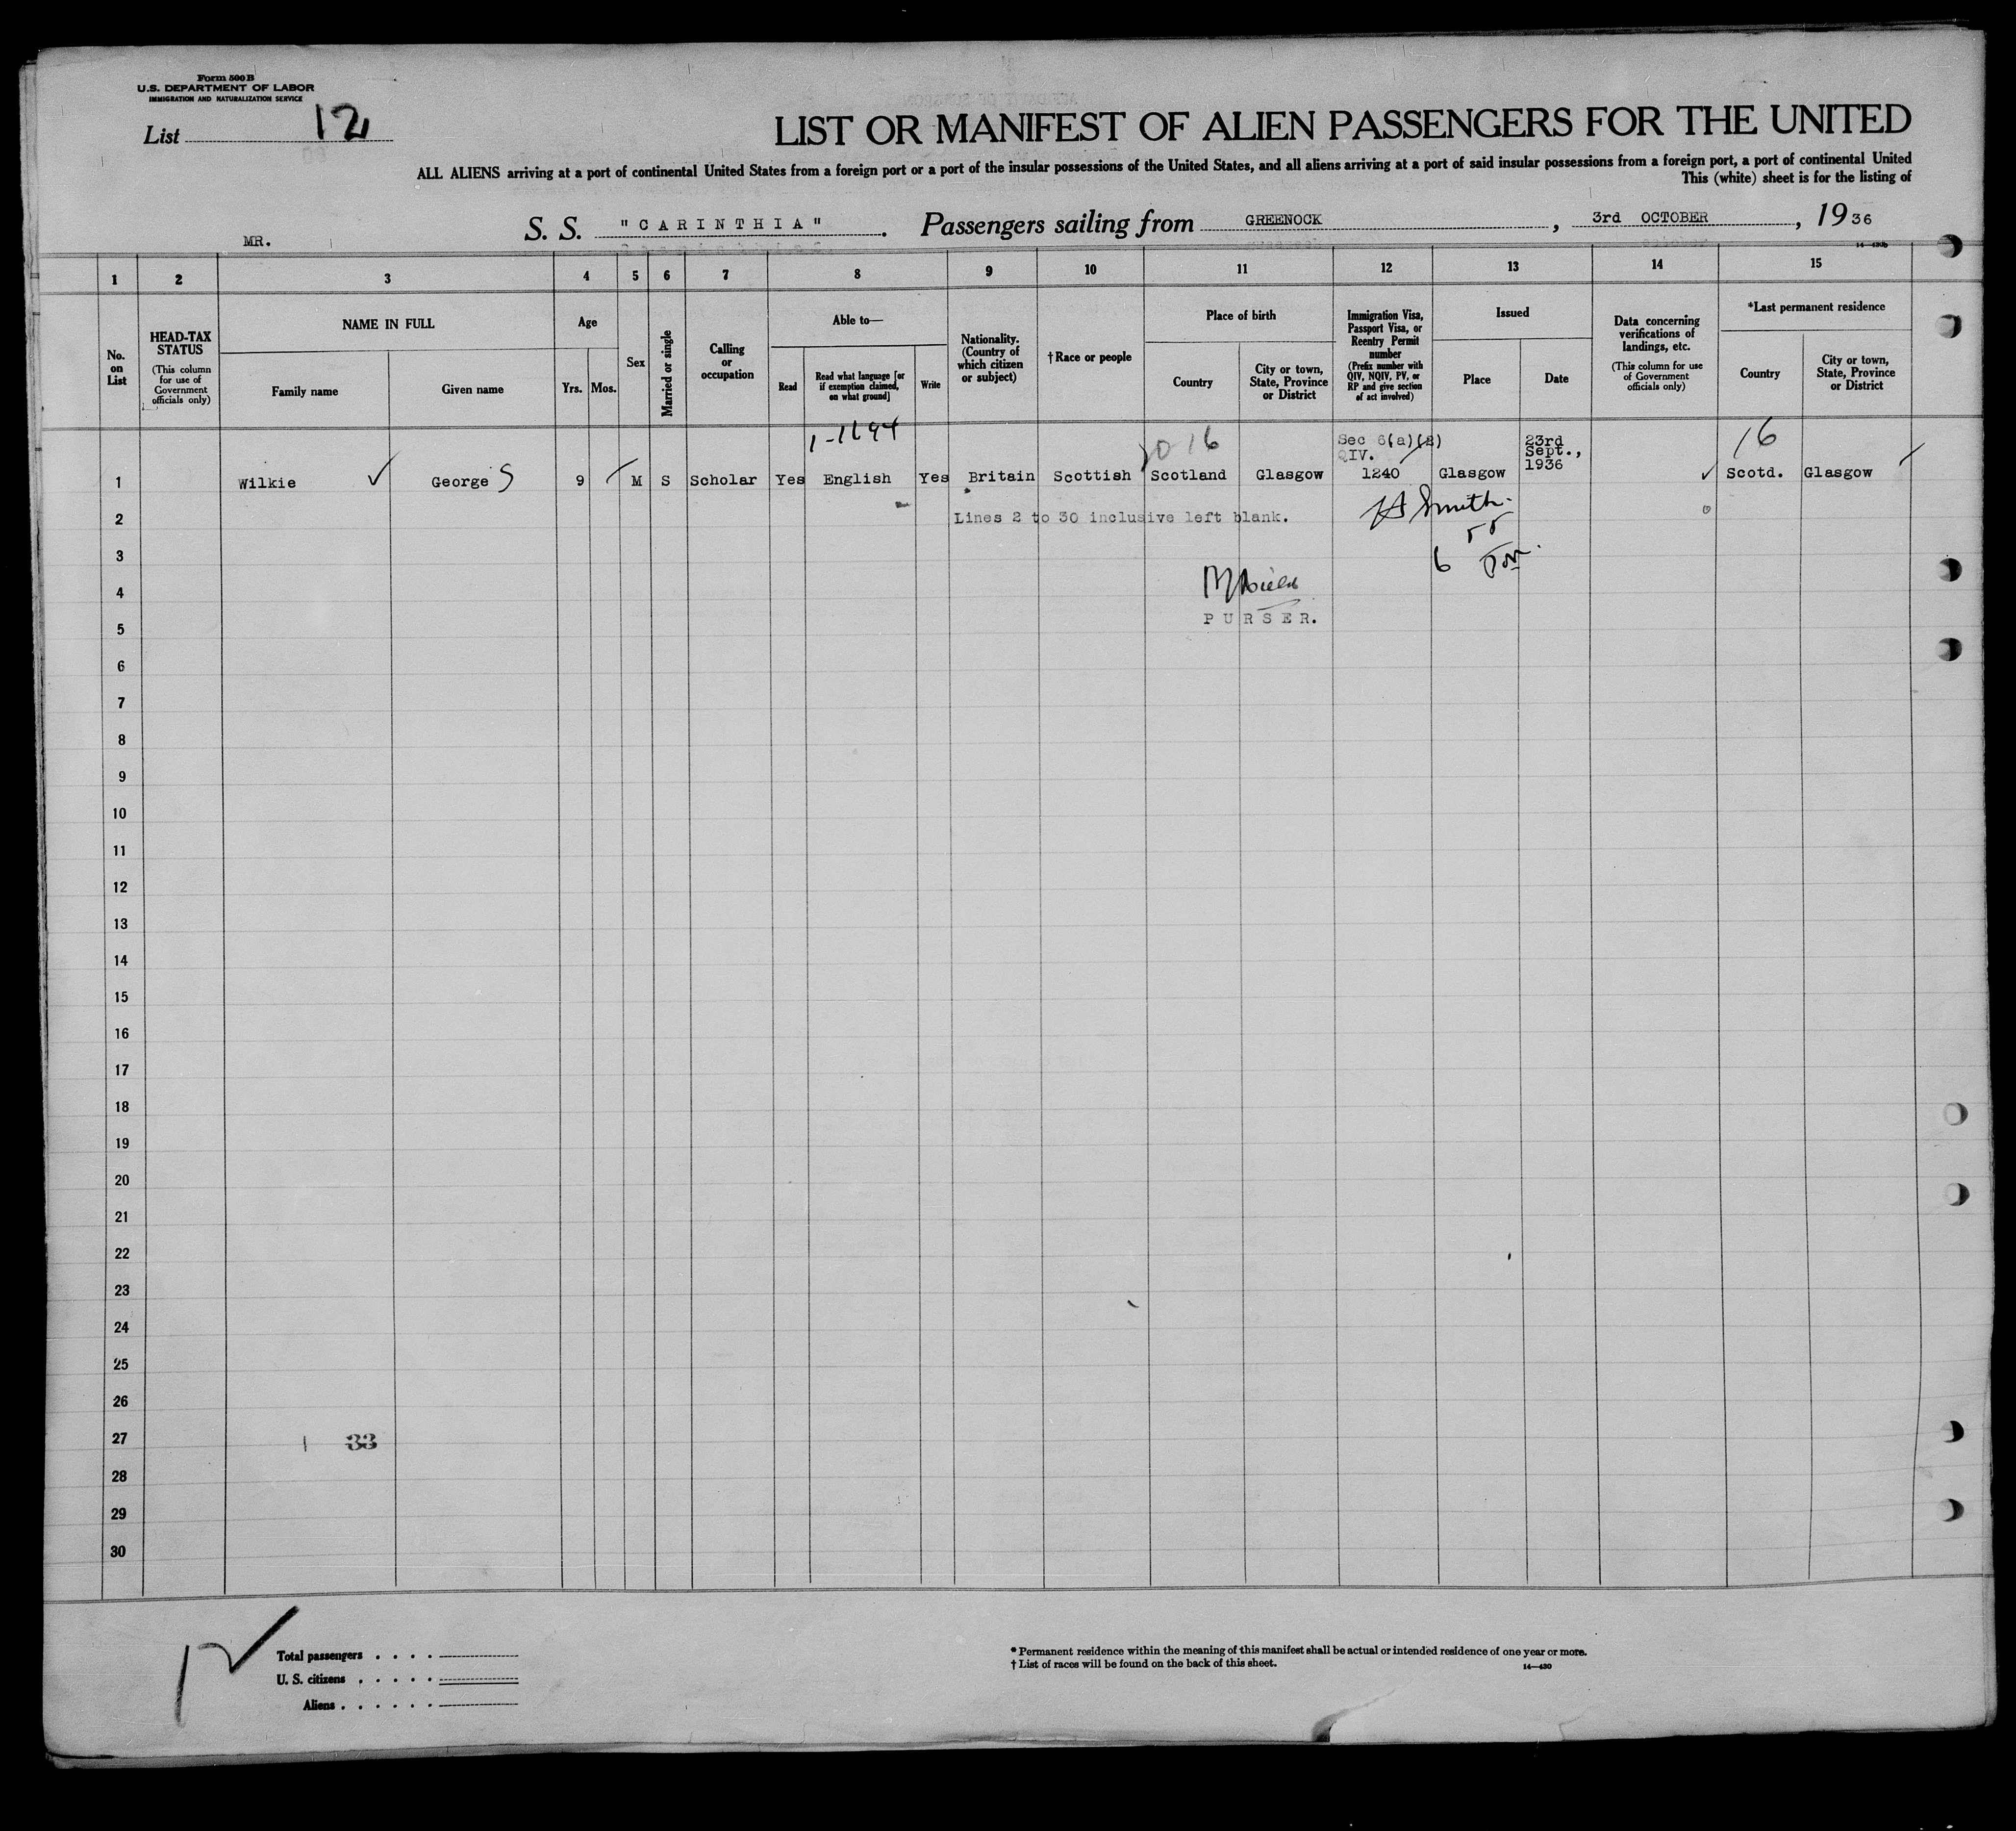 Form 500 B
U.S. DEPARTMENT OF LABOR
IMMIGRATION AND NATURALIZATION SERVICE
List 12
LIST OR MANIFEST OF ALIEN PASSENGERS FOR THE UNITED
ALL ALIENS arriving at a port of continental United States from a foreign port or a port of the insular possessions of the United States, and all aliens arriving at a port of said insular possessions from a foreign port, a port of continental United
This (white) sheet is for the listing of
MR.
S. S. "CARINTHIA". Passengers sailing from GREENOCK, 3rd OCTOBER, 1936
1 2 3 4 5 6 7 8 9 10 11 12 13 14 15
No. on List
HEAD-TAX STATUS
(This column for use of Government officials only)
NAME IN FULL
Family name
Given name
Age
Yrs. Mos.
Sex
Married or single
Calling or occupation
Able to—
Read
Read what language [or if exemption claimed, on what ground]
Write
Nationality. (Country of which citizen or subject)
†Race or people
Place of birth
Country
City or town, State, Province or District
Immigration Visa, Passport Visa, or Reentry Permit number
(Prefix number with QIV, NQIV, PV, or RP and give section of act involved)
Issued
Place
Date
Data concerning verifications of landings, etc.
(This column for use of Government officials only)
*Last permanent residence
Country
City or town, State, Province or District
1-1694
16
Sec 6(a)(2)
QIV.
23rd
Sept.,
1936
16
1 Wilkie ✓ George S 9 M S Scholar Yes English Yes Britain Scottish Scotland Glasgow 1240 Glasgow ✓ Scotd. Glasgow
2 Lines 2 to 30 inclusive left blank. Smith
55
3 6
4
5 PURSER.
6
7
8
9
10
11
12
13
14
15
16
17
18
19
20
21
22
23
24
25
26
27 33
28
29
30
Total passengers
U. S. citizens
Aliens
* Permanent residence within the meaning of this manifest shall be actual or intended residence of one year or more.
† List of races will be found on the back of this sheet.
14—430